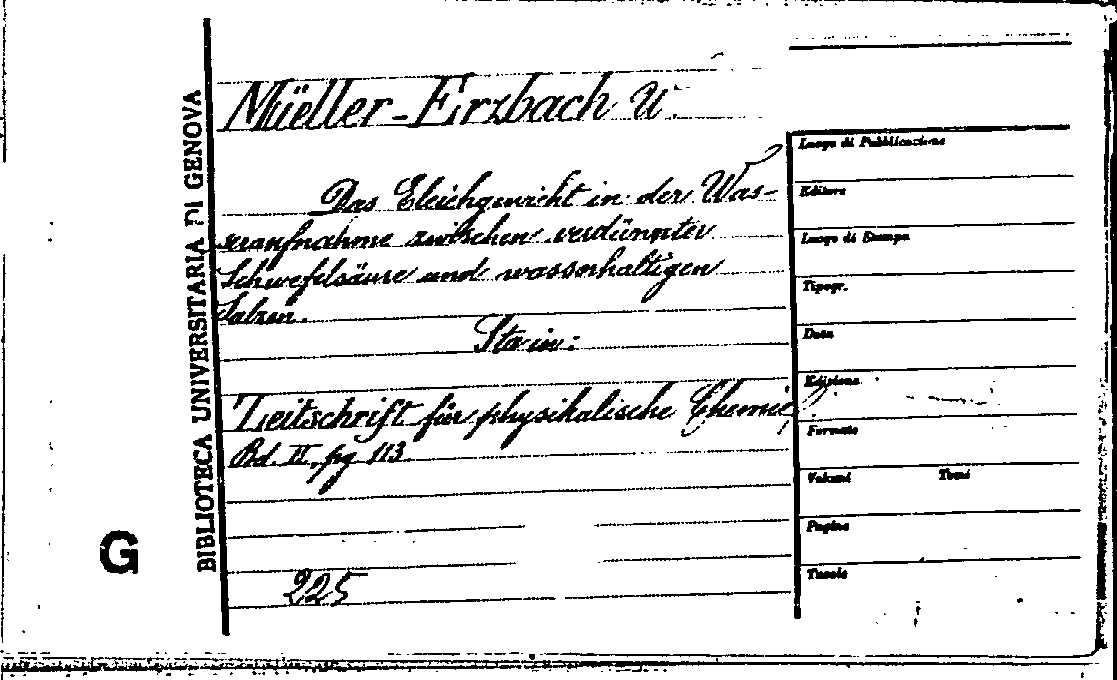 BIBLIOTECA UNIVERSITARIA DI GENOVA
G
Müeller-Erzbach U.
Das Gleichgewicht in der Was-
seraufnahme zwischen verdünnter
Schwefelsäure und wasserhaltigen
Salzen.
Sta in:
Zeitschrift für physikalische Chemie
Bd. II, pg 113
225
Luogo di Pubblicazione
Editore
Luogo di Stampa
Tipogr.
Data
Edizione
Formato
Volumi Tomi
Pagine
Tavole